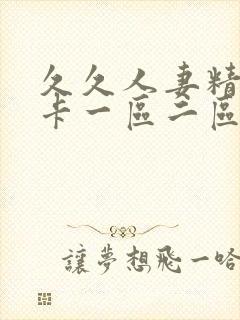 久久人妻精
卡一區二區
讓夢想飛一哈